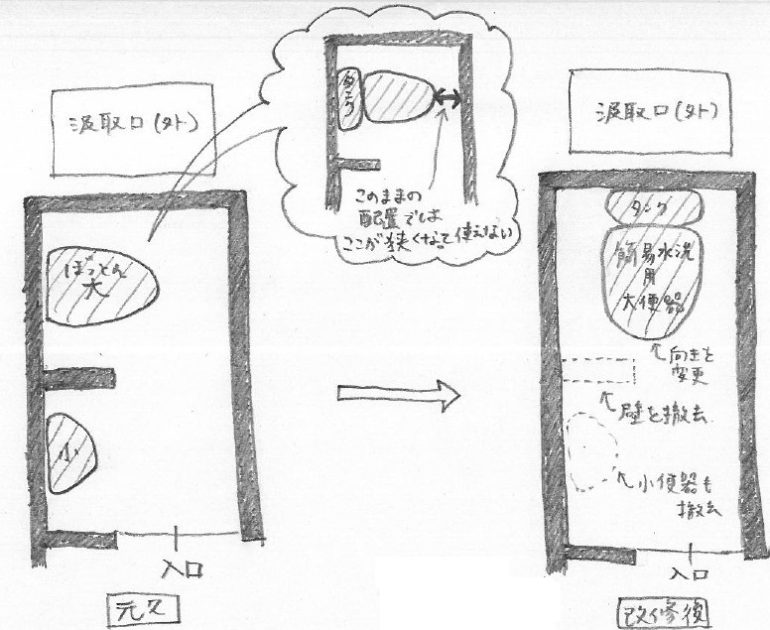 汲取口(外)
ぽっとん
大
小
入口
元々
タンク
このままの
配置では
ここが狭くなって使えない
汲取口(外)
タンク
簡易水洗
用
大便器
向きを
変更
壁を撤去
小便器も
撤去
入口
改修後